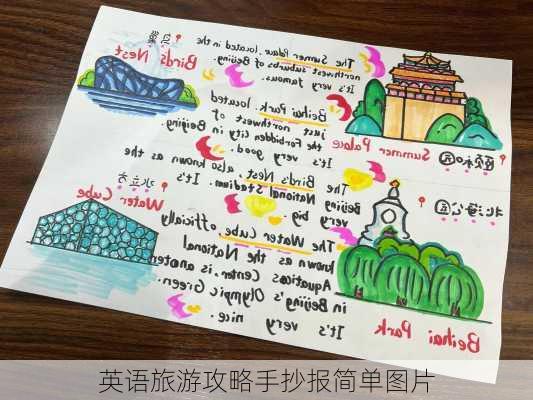 鸟巢
Birds Nest
The Sumner Palace, located in the
northwest suburbs of Beijing.
It's very famous.
颐和园
Summer Palace
Beihai Park, located
just northwest of
the Forbidden City in Beijing.
It's very good.
The Birds Nest, also known as the
Beijing National Stadium. It's
very big.
水立方
Water Cube
The Water Cube, officially
known as the National
Aquatics Center, is anoter
in Beijing's Olympic Green.
It's very nice.
北海公园
Beihai Park
英语旅游攻略手抄报简单图片